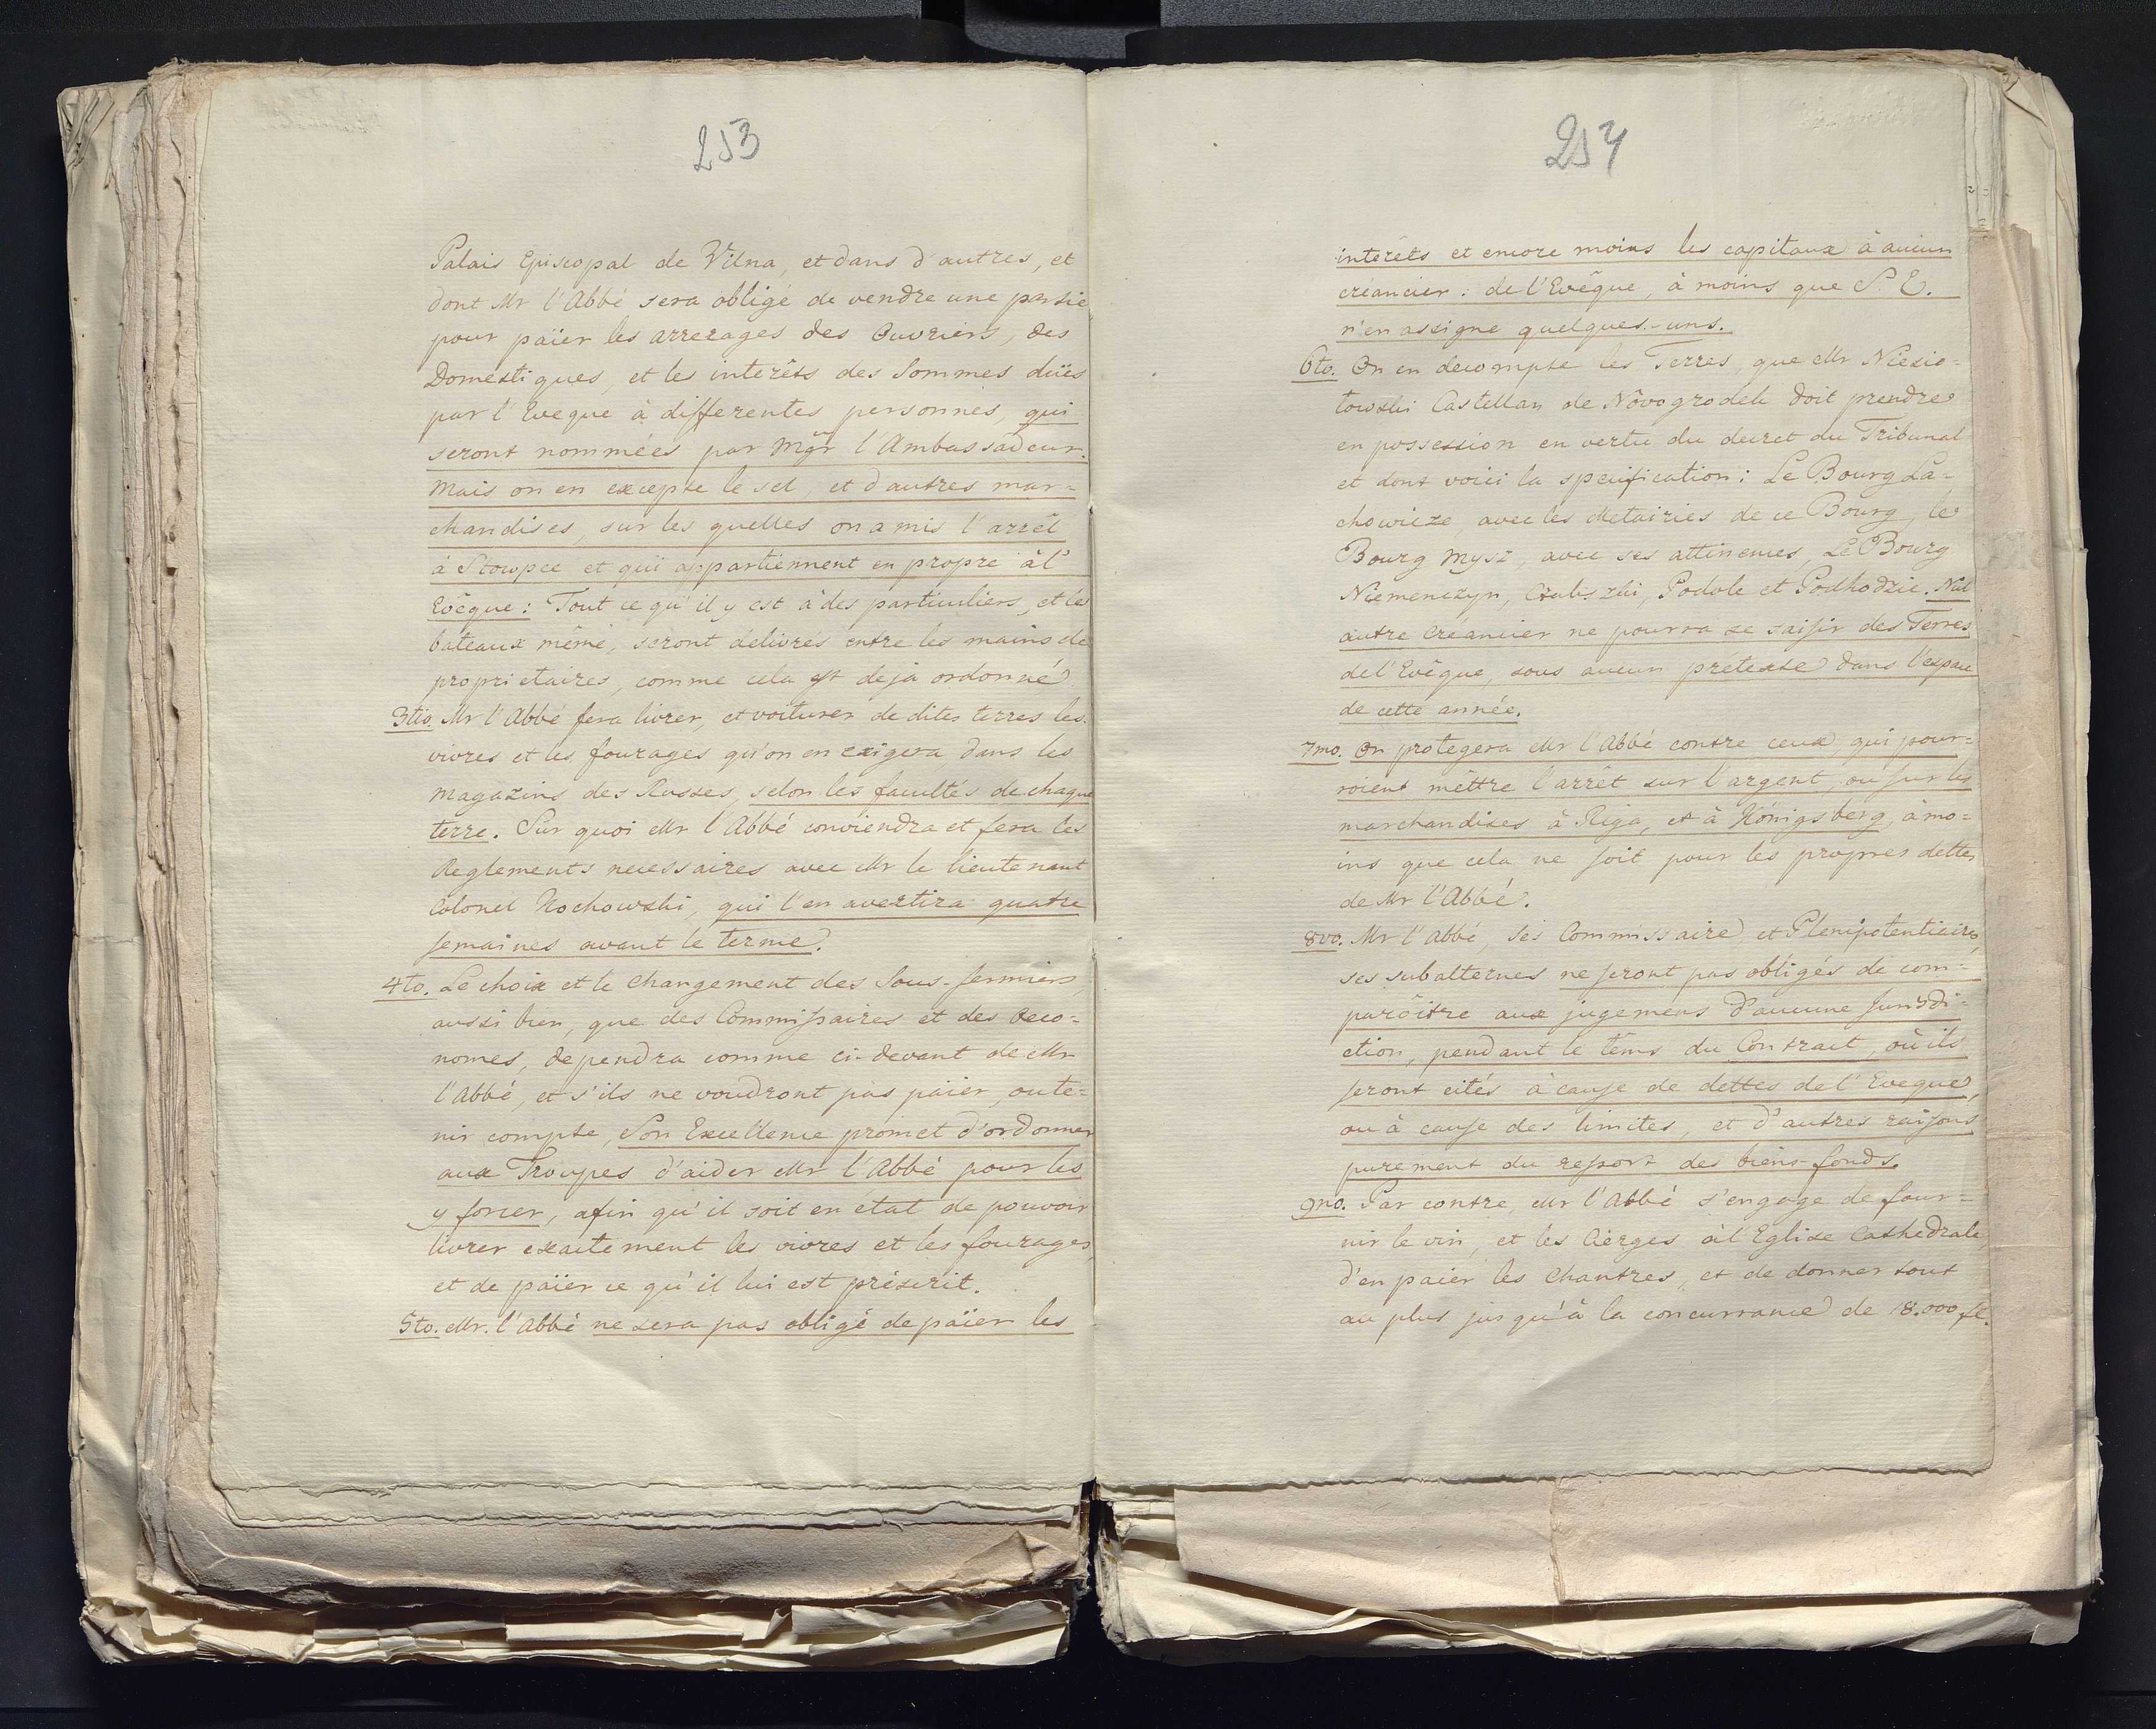 253
Palais Episcopal de Vilna, et dans d'autres, et
dont Mr l'Abbé sera obligé de vendre une partie
pour païer les arrerages des Ouvriers, des
Domestiques, et les interêts des Sommes duës
par l'Eveque à differentes personnes, qui
seront nommées par Mgr l'Ambassadeur.
Mais on en excepte le sel, et d'autres mar=
chandises, sur les quelles on a mis l'arrêt
à Stowpce et qui appartiennent en propre à l'
Evêque: Tout ce qu'il y est à des particuliers, et les
bateaux même, seront delivrés entre les mains de
proprietaires, comme cela est deja ordonné
3tio. Mr l'Abbé fera livrer, et voiturer de dites terres les
vivres et les fourages qu'on en exigera dans les
Magazins des Russes, selon les facultés de chaque
terre. Sur quoi Mr l'Abbé conviendra et fera les
Reglements necessaires avec Mr le lieutenant
Colonel Nochowski, qui l'en avertira quatre
semaines avant le terme.
4to. Le choix et le changement des Sous-fermiers,
aussi bien, que des Commissaires et des Oeco=
nomes, dependra comme ci-devant de Mr
l'Abbé, et s'ils ne voudront pas païer, ou te=
nir compte, Son Excellence promet d'ordonner
aux Troupes d'aider Mr l'Abbé pour les
y forcer, afin qu'il soit en état de pouvoir
livrer exactement les vivres et les fourages,
et de païer ce qu'il lui est préscrit.
5to. Mr. l'Abbé ne sera pas obligé de païer les
254
interêts et encore moins les capitaux à aucun
creancier: de l'Evêque, à moins que S. E.
n'en assigne quelques-uns.
6to. On en decompte les Terres, que Mr Niesio=
towski Castellan de Nôvogrodek doit prendre
en possession en vertu du decret du Tribunal
et dont voici la specification: Le Bourg La=
chowicze, avec les Metairies de ce Bourg, le
Bourg Mysz, avec ses attinences, Le Bourg
Niemenczyn, Podole et Podhodzie. Nul
autre Créancier ne pourra se saisir des Terres
de l'Evêque, sous aucun prétexte dans l'espace
de cette année.
7mo. On protegera Mr l'Abbé contre ceux, qui pour=
roient mettre l'arrêt sur l'argent, ou sur les
marchandises à Riga, et à Königsberg, à mo=
ins que cela ne soit pour les propres dettes
de Mr l'Abbé.
8vo. Mr l'Abbé, ses Commissaire et Plenipotentiaire,
ses subalternes ne seront pas obligés de com=
parôitre aux jugemens d'aucune Jurisdi=
ction, pendant le têms du Contract, où ils
seront cités à cause de dettes de l'Eveque,
ou à cause des limites, et d'autres raisons
purement du ressort des biens-fonds.
9no. Par contre, Mr l'Abbé s'engage de four=
nir le vin, et les Cierges à l'Eglise Cathedrale,
d'en paier les Chantres, et de donner tout
au plus jusqu'à la concurrance de 18.000 fl.